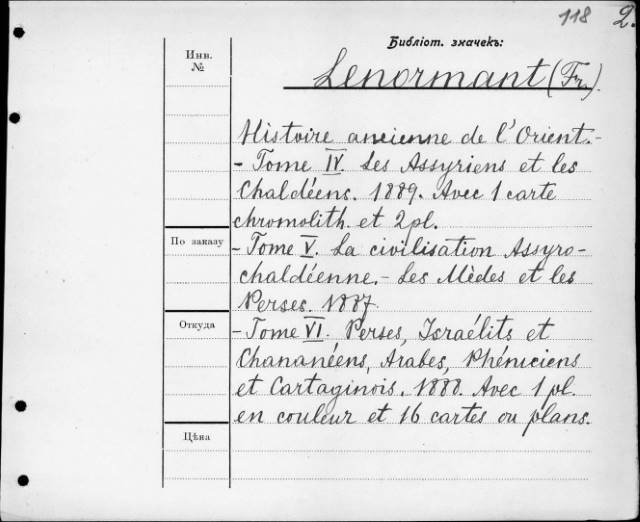 118 2.
Библіот. значекъ:
Инв. №
Lenormant (Fr.).
Histoire ancienne de l'Orient.-
- Tome IV. Les Assyriens et les
Chaldéens. 1889. Avec 1 carte
chromolith. et 2 pl.
По заказу
- Tome V. La civilisation Assyro-
chaldéenne.- Les Mèdes et les
Perses. 1887.
Откуда
- Tome VI. Perses, Israélits et
Chananéens, Arabes, Phéniciens
et Cartaginois. 1888. Avec 1 pl.
en couleur et 16 cartes ou plans.
Цѣна